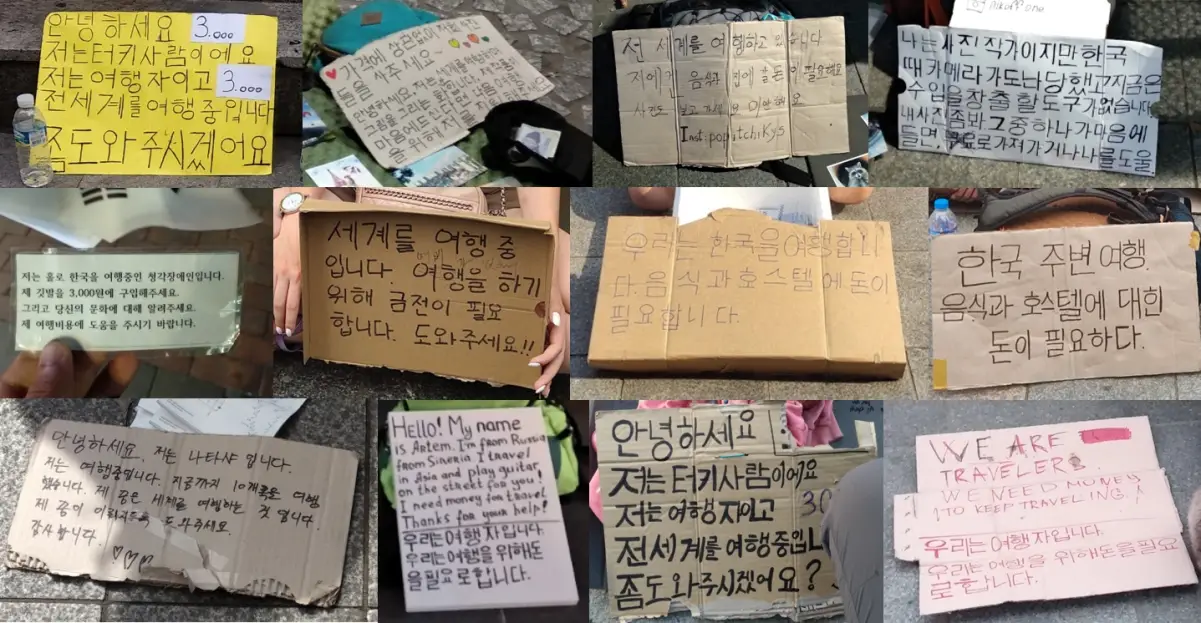 안녕하세요 3.000
저는터키사람이에요
저는여행자이고 3.000
전세계를여행중입니다
좀도와주시겠어요
가격에 상관없이
사주세요
안녕하세요. 저는
그림을
마음에드
를 위해
전 세계를 여행하고 있습니다
저에겐 음식과 집에 갈 돈이 필요해요
Inst:poputchikys
나는사진작가이지만한국
때카메라가도나당했고지금은
수입을창출할도구가없습니다
내사진좀봐그중하나가마음에
들면,무료로가져가거나나를도울
저는 홀로 한국을 여행중인 청각장애인입니다.
제 깃발을 3,000원에 구입해주세요.
그리고 당신의 문화에 대해 알려주세요.
제 여행비용에 도움을 주시기 바랍니다.
세계를 여행 중
입니다. 여행을 하기
위해 금전이 필요
합니다. 도와주세요!!
우리는 한국을여행합니
다.음식과호스텔에돈이
필요합니다.
한국 주변 여행.
음식과 호스텔에 대한
돈이 필요하다.
안녕하세요, 저는 나타샤 입니다.
저는 여행중입니다. 지금까지 10개국을 여행
했습니다. 제 꿈은 세계를 여행하는 것 입니다.
제 꿈이 이뤄지도록 도와주세요.
감사합니다.
Hello! My name
is Artem. I'm from Russia
from Sineria I travel
in Asia and play guitar
on the street for you!
I need money for travel
Thanks for your help!
우리는여행자입니다.
우리는여행을위해돈
을필요로합니다.
안녕하세요!
저는터키사람이어요
저는여행자이고 30
전세계를여행중입니
좀도와주시겠어요?
WE ARE
TRAVELERS.
WE NEED MONEY
TO KEEP TRAVELING!
우리는여행자입니다.
우리는여행을위해돈을필요
로합니다.